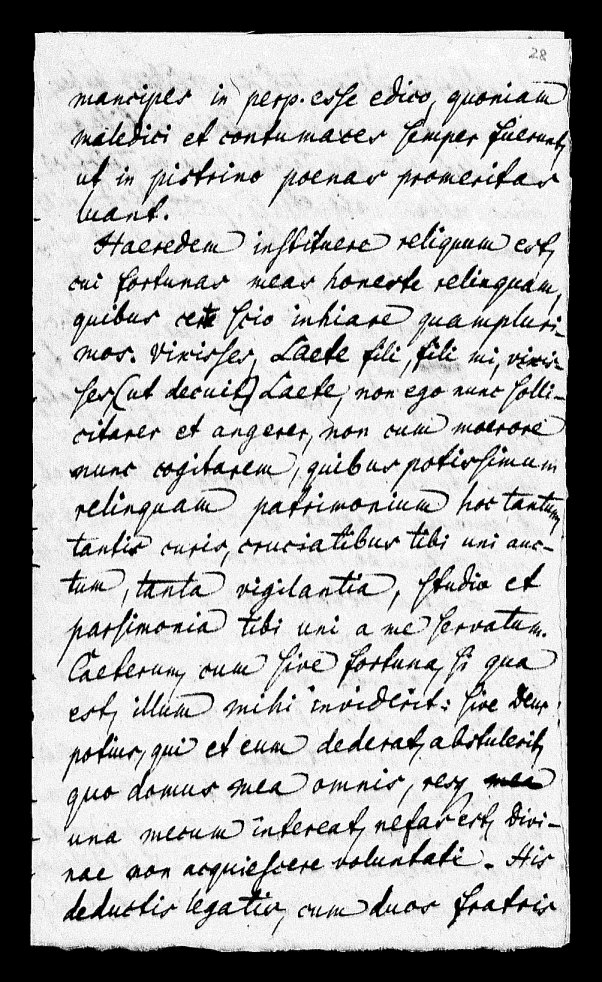 28
mancipes in perp. esse edico, quoniam
maledici et contumaces semper fuerunt,
ut in pistrino poenas promeritas
luant.
Haeredem instituere reliquum est,
cui fortunas meas honeste relinquam,
quibus certe scio inhiare quampluri-
mos. Vixisses, Laete fili, fili mi, vixis-
ses, (ut decuit) Laete, non ego nunc solli-
citarer et angerer, non cum moerore
nunc cogitarem, quibus potissimum
relinquam patrimonium hoc tantum,
tantis curis, cruciatibus tibi uni auc-
tum, tanta vigilantia, studio et
parsimonia tibi uni a me servatum.
Caeterum, cum sive fortuna, si qua
est, illum mihi inviderit: sive Deus
potius, qui et eum dederat, abstulerit,
quo domus mea omnis, resq mea
una mecum intereat, nefas est, Divi-
nae non acquiescere voluntati. His
deductis legatis, cum duos fratris